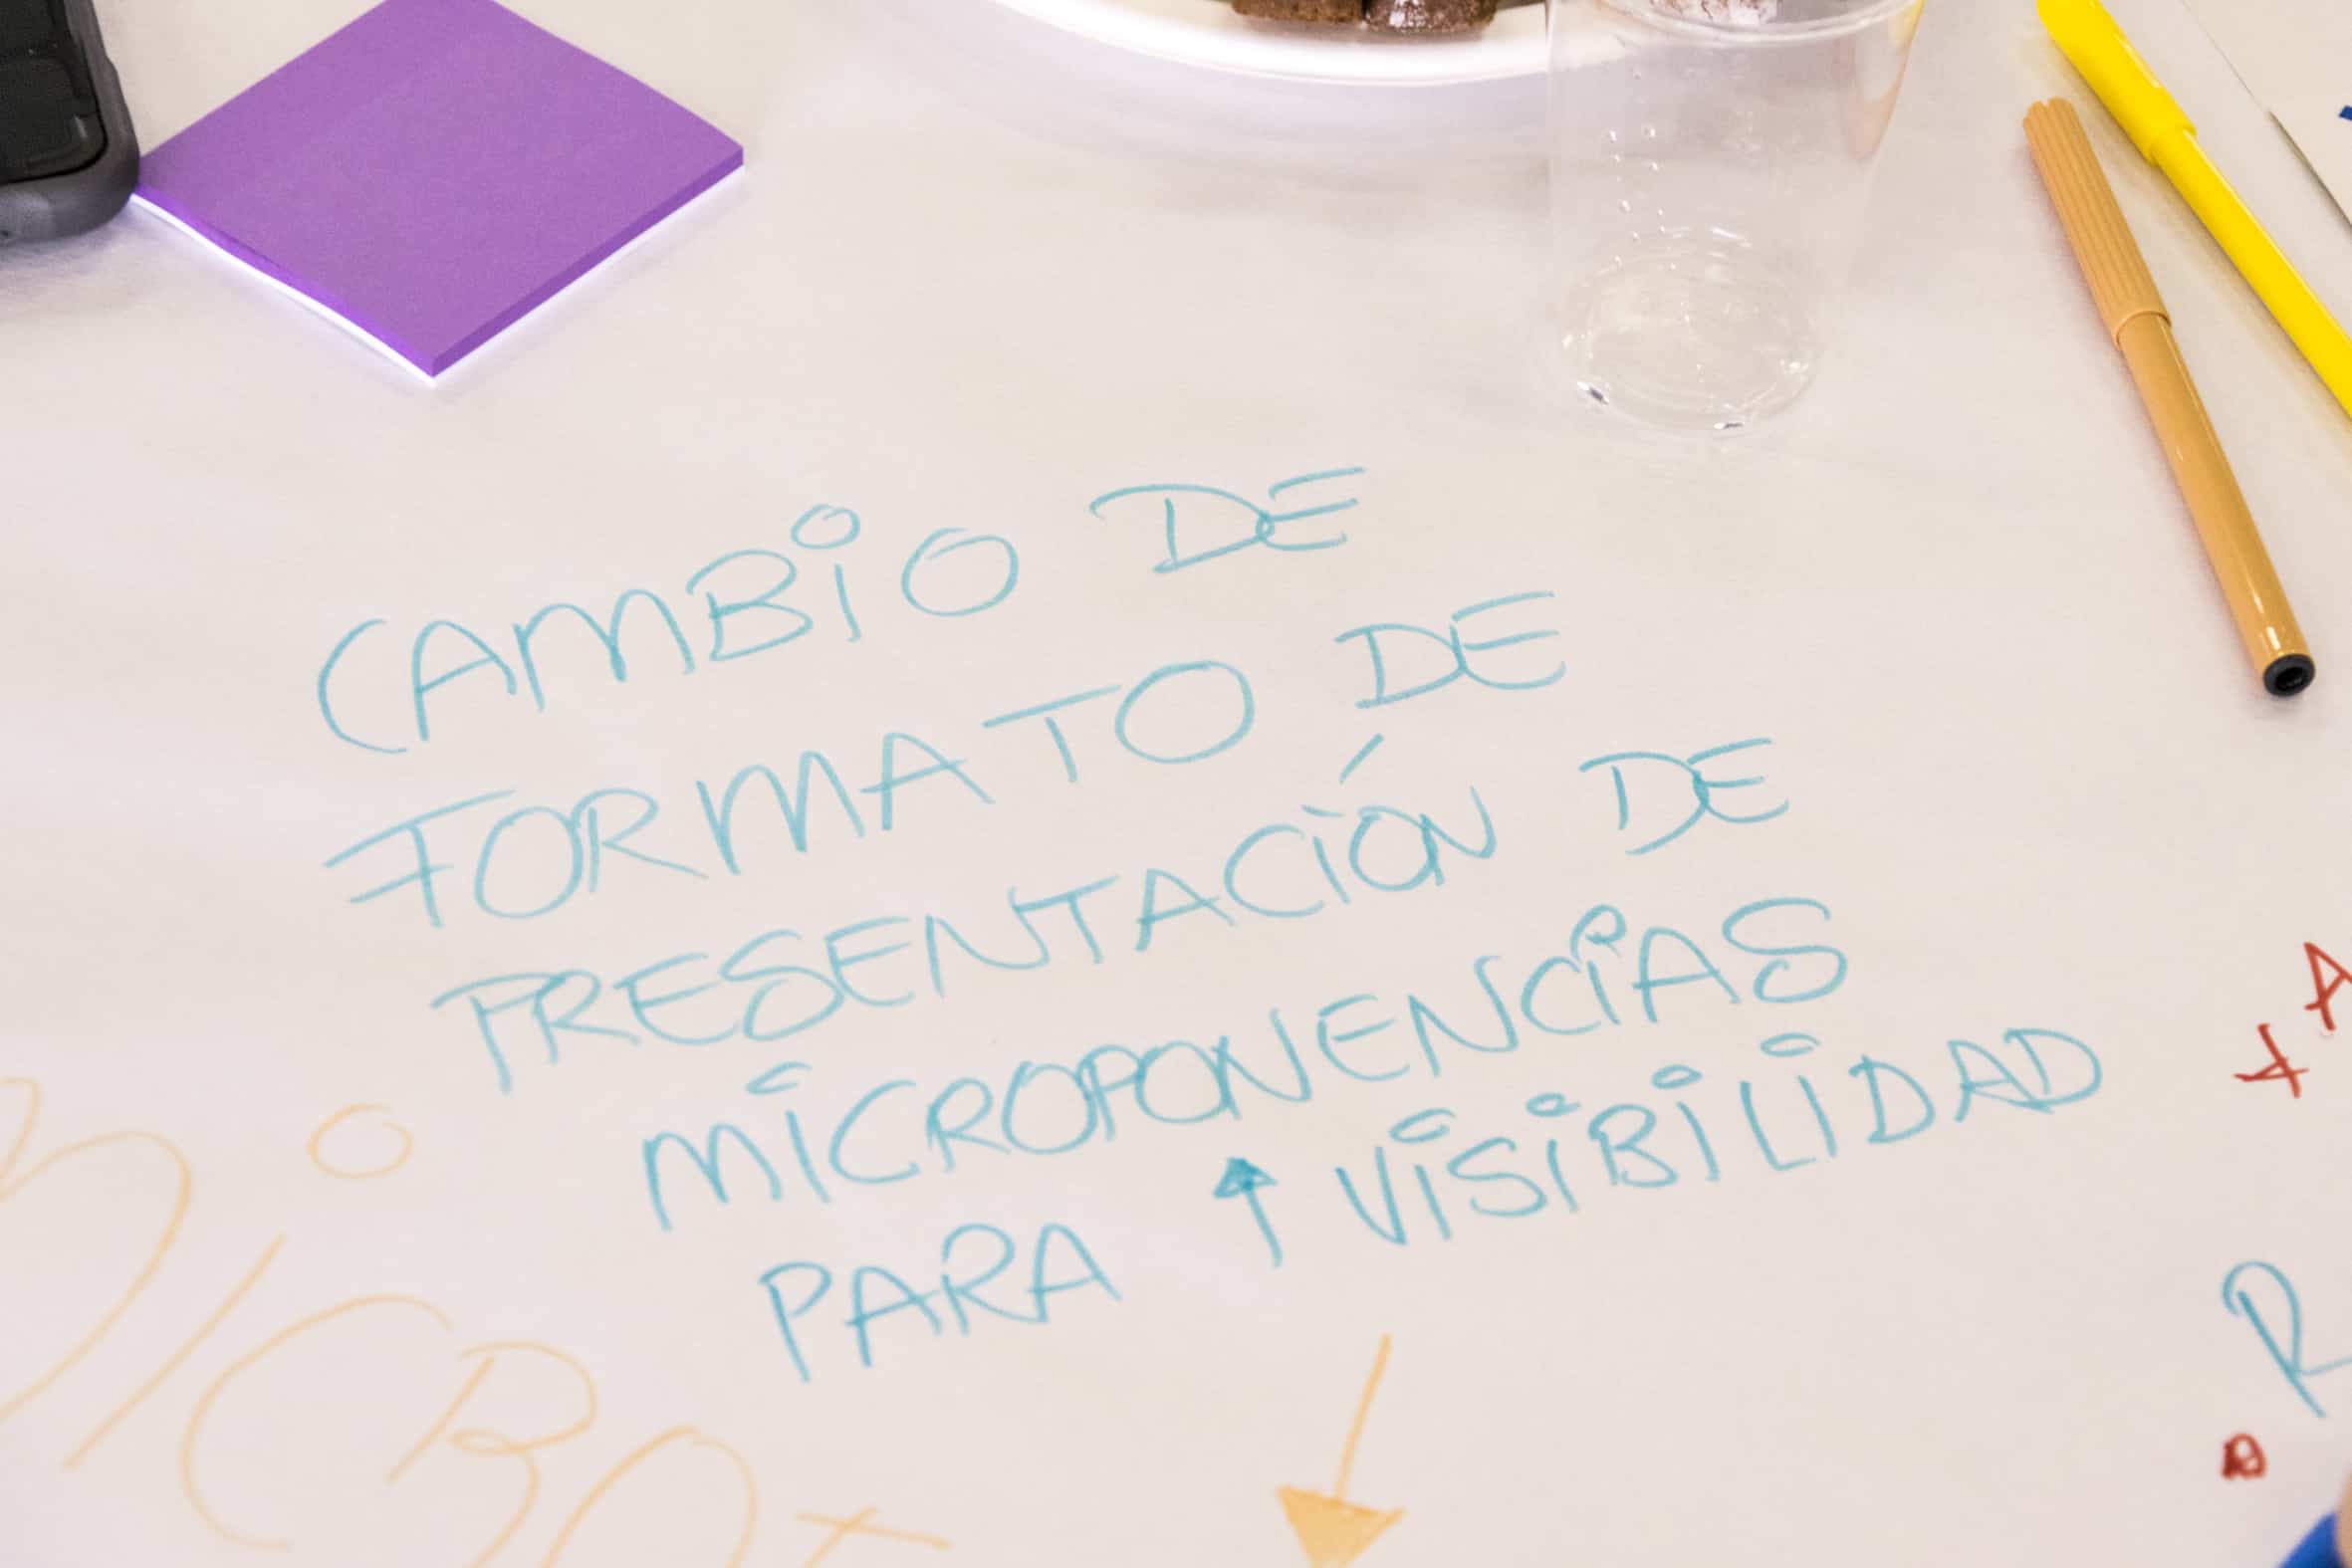 CAMBIO DE
FORMATO DE
PRESENTACIÓN DE
MICROPONENCIAS
PARA ↑ VISIBILIDAD
+ A
R
MICRO